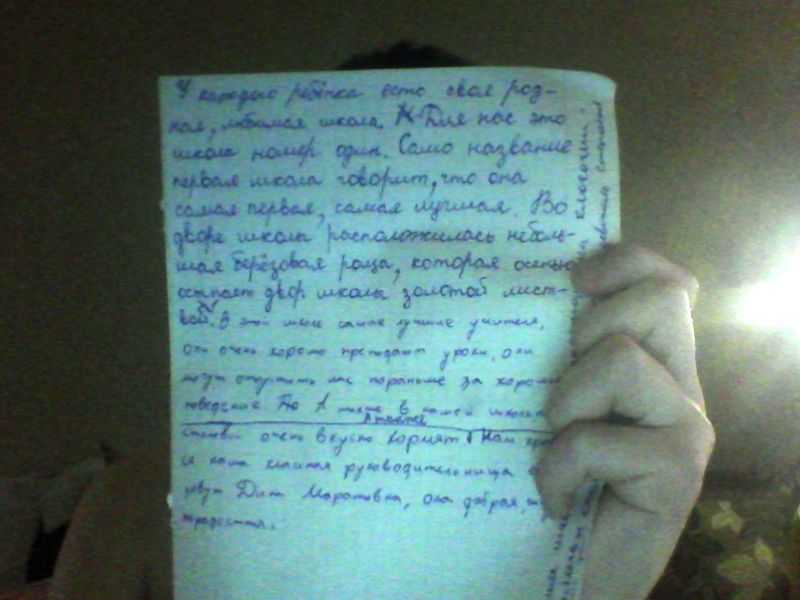 У каждого ребёнка есть своя род-
ная, любимая школа. Для нас это
школа номер один. Само название
первая школа говорит, что она
самая первая, самая лучшая. Во
дворе школы расположилась неболь-
шая берёзовая роща, которая осенью
осыпает двор школы золотой лист-
вой. В этой школе самые лучшие учителя,
они очень хорошо преподают уроки, они
могут отпустить нас пораньше за хорошее
поведение. А также в нашей школьной
А также
столовой очень вкусно кормят. Нам
ся наша классная руководительница
зовут Дина Маратовна, она добрая,